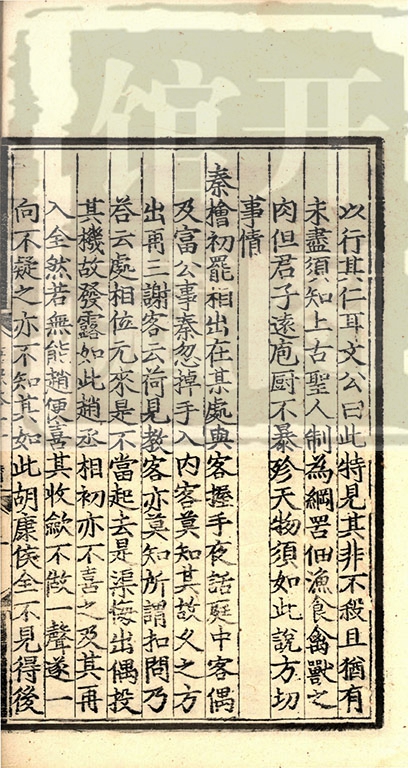 以行其仁耳文公曰此特見其非不殺且猶有
未盡須知上古聖人制為網罟佃漁食禽獸之
肉但君子遠庖厨不暴殄天物須如此說方切
事情
秦檜初罷相出在某處與客握手夜話庭中客偶
及富公事秦忽掉手入内客莫知其故久之方
出再三謝客云荷見教客亦莫知所謂扣問乃
荅云處相位元來是不當起去是渠悔出偶投
其機故發露如此趙丞相初亦不喜之及其再
入全然若無能趙便喜其收歛不做一聲遂一
向不疑之亦不知其如此胡康侯全不見得後